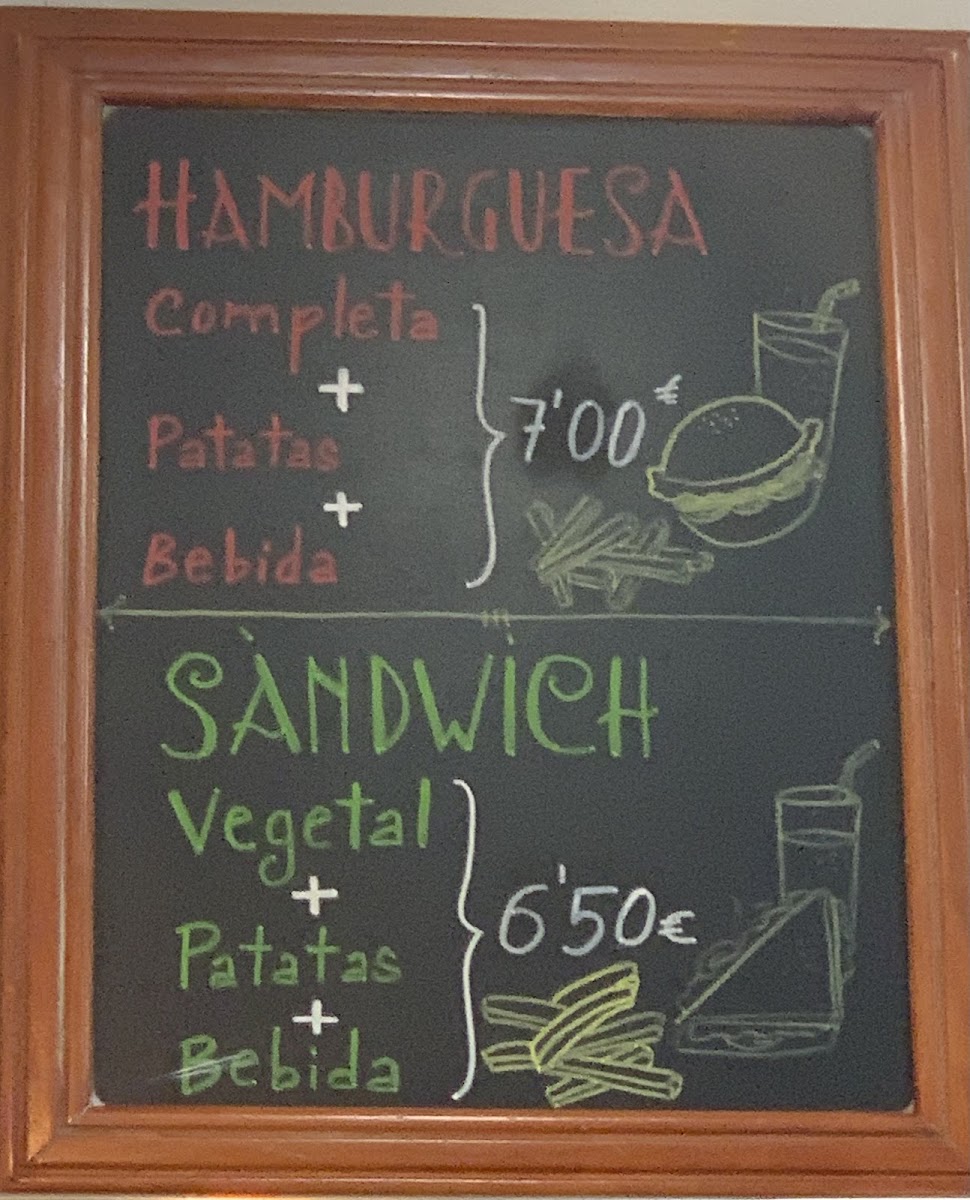 HAMBURGUESA
Completa
+
Patatas
+
Bebida
7'00€
SÀNDWÌCH
Vegetal
+
Patatas
+
Bebida
6'50€